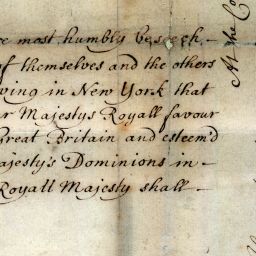 most humbly beseech
of themselves and the others
ving in New York that
Majestys Royall favour
Great Britain and esteem'd
ajesty's Dominions in
Royall Majesty shall
At the